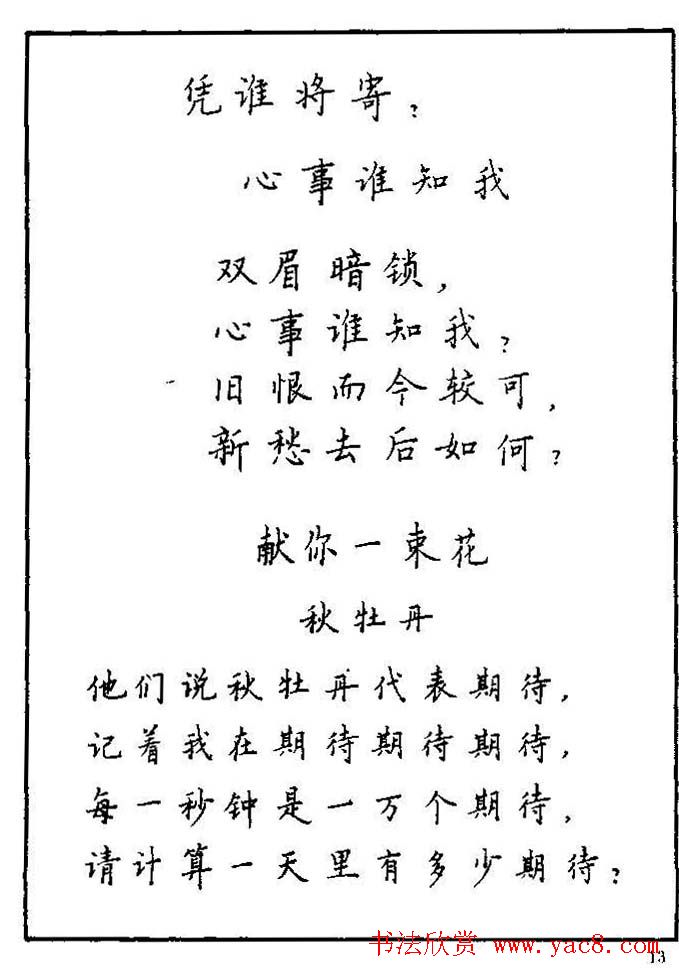 凭谁将寄?
心事谁知我
双眉暗锁,
心事谁知我?
旧恨而今较可,
新愁去后如何?
献你一束花
秋牡丹
他们说秋牡丹代表期待,
记着我在期待期待期待,
每一秒钟是一万个期待,
请计算一天里有多少期待?
书法欣赏 www.yac8.com
13